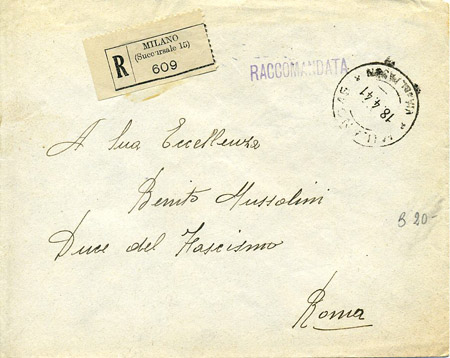 MILANO
(Succursale 15)
R
609
RACCOMANDATA
18.4.41
A Sua Eccellenza
Benito Mussolini
Duce del Fascismo
Roma
B 20-